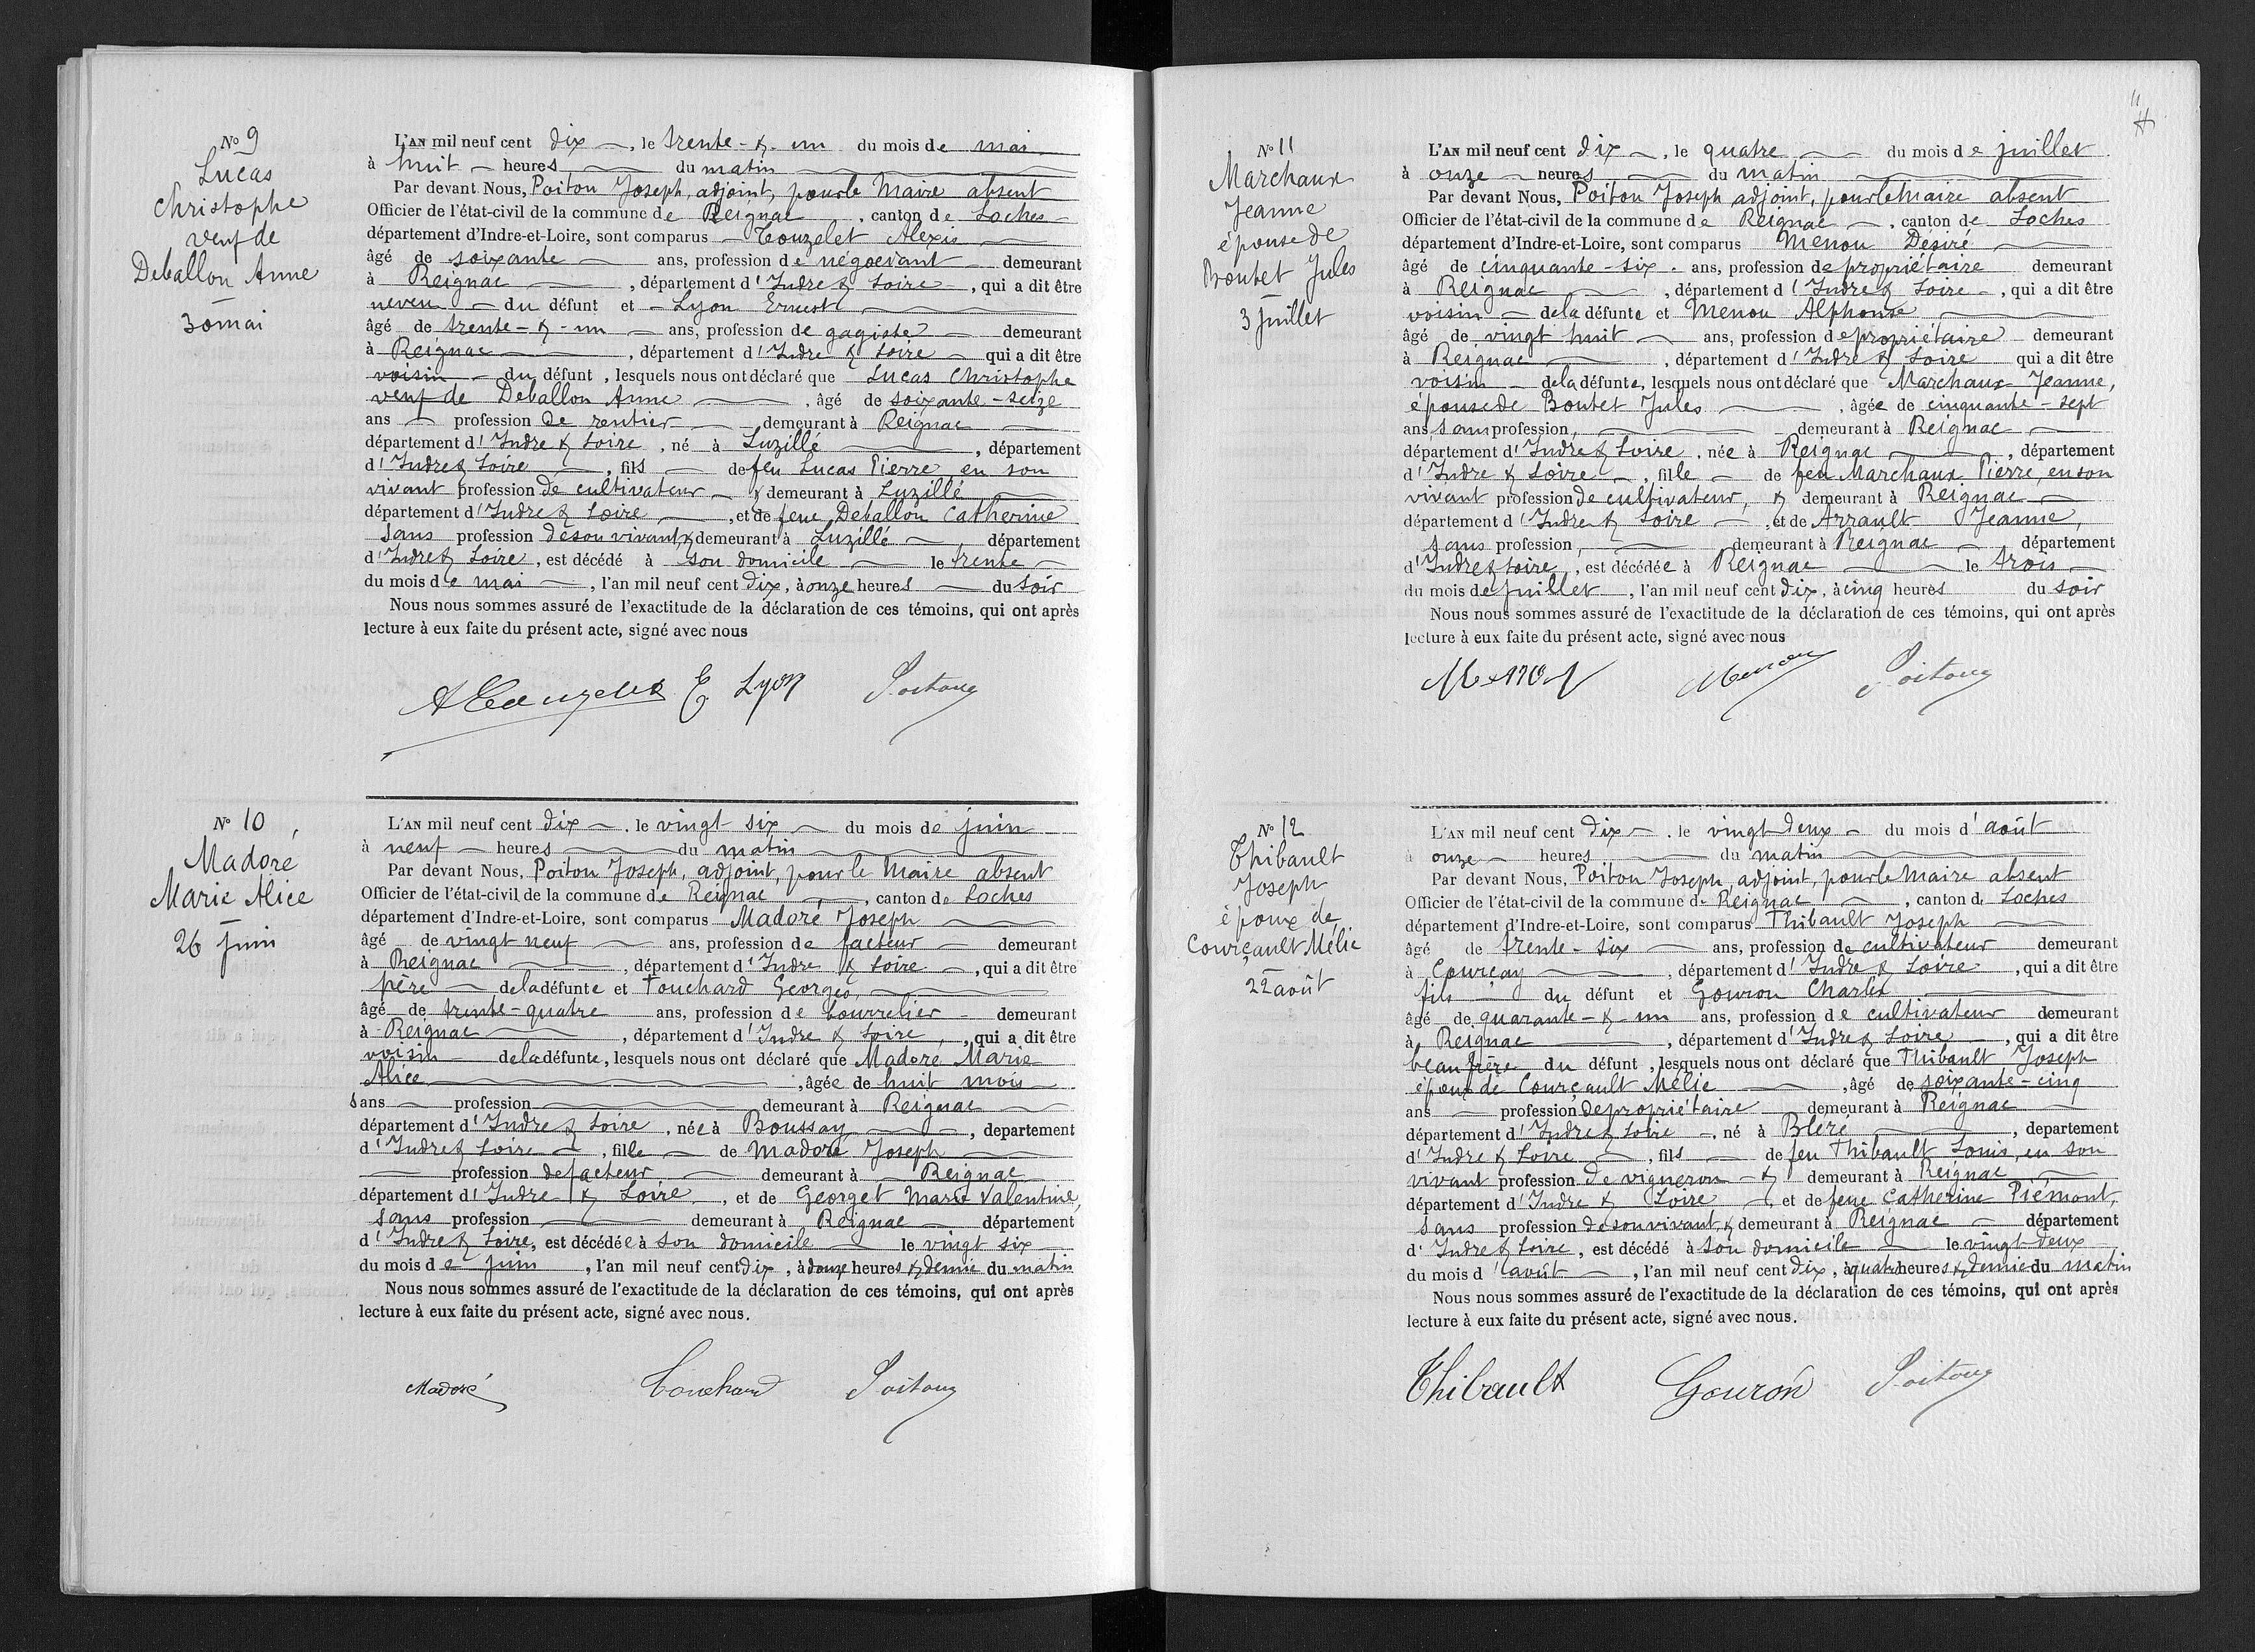 N° 9
Lucas
Christophe
veuf de
Deballon Anne
30 mai
L'AN mil neuf cent dix, le trente-&-un du mois de mai
à huit heures du matin
Par devant Nous, Poitou Joseph, adjoint, pour le Maire absent
Officier de l'état-civil de la commune de Reignac, canton de Loches
département d'Indre-et-Loire, sont comparus Touzelet Alexis
âgé de soixante ans, profession de négociant demeurant
à Reignac, département d'Indre & Loire, qui a dit être
neveu du défunt et Lyon Ernest
âgé de trente-&-un ans, profession de gagiste demeurant
à Reignac, département d'Indre & Loire qui a dit être
voisin du défunt, lesquels nous ont déclaré que Lucas Christophe
veuf de Deballon Anne, âgé de soixante-seize
ans profession de rentier demeurant à Reignac
département d'Indre & Loire, né à Luzillé, département
d'Indre & Loire, fils de feu Lucas Pierre en son
vivant profession de cultivateur & demeurant à Luzillé
département d'Indre & Loire, et de feue Deballon Catherine
sans profession de son vivant, & demeurant à Luzillé, département
d'Indre & Loire, est décédé à son domicile le trente
du mois de mai, l'an mil neuf cent dix, à onze heures du soir
Nous nous sommes assuré de l'exactitude de la déclaration de ces témoins, qui ont après
lecture à eux faite du présent acte, signé avec nous
E Lyon Poitou
N° 10
Madoré
Marie Alice
26 juin
L'AN mil neuf cent dix, le vingt six du mois de juin
à neuf heures du matin
Par devant Nous, Poitou Joseph, adjoint, pour le Maire absent
Officier de l'état-civil de la commune de Reignac, canton de Loches
département d'Indre-et-Loire, sont comparus Madoré Joseph
âgé de vingt neuf ans, profession de facteur demeurant
à Reignac, département d'Indre & Loire, qui a dit être
père de la défunte et Touchard Georges,
âgé de trente-quatre ans, profession de bourrelier demeurant
à Reignac, département d'Indre & Loire, qui a dit être
voisin de la défunte, lesquels nous ont déclaré que Madoré Marie
Alice, âgée de huit mois
sans profession demeurant à Reignac
département d'Indre & Loire, née à Boussay, département
d'Indre & Loire, fille de Madoré Joseph
profession de facteur demeurant à Reignac
département d'Indre & Loire, et de Georget Marie Valentine,
sans profession demeurant à Reignac département
d'Indre & Loire, est décédée à son domicile le vingt six
du mois de juin, l'an mil neuf cent dix, à douze heures & demie du matin
Nous nous sommes assuré de l'exactitude de la déclaration de ces témoins, qui ont après
lecture à eux faite du présent acte, signé avec nous.
Madoré Touchard Poitou
11
N° 11
Marchaux
Jeanne
épouse de
Boutet Jules
3 juillet
L'AN mil neuf cent dix, le quatre du mois de juillet
à onze heures du matin
Par devant Nous, Poitou Joseph adjoint, pour le maire absent
Officier de l'état-civil de la commune de Reignac, canton de Loches
département d'Indre-et-Loire, sont comparus Menou Désiré
âgé de cinquante-six ans, profession de propriétaire demeurant
à Reignac, département d'Indre & Loire, qui a dit être
voisin de la défunte et Menou Alphonse
âgé de vingt huit ans, profession de propriétaire demeurant
à Reignac, département d'Indre & Loire qui a dit être
voisin de la défunte, lesquels nous ont déclaré que Marchaux Jeanne,
épouse de Boutet Jules, âgée de cinquante-sept
ans sans profession, demeurant à Reignac
département d'Indre & Loire, née à Reignac, département
d'Indre & Loire, fille de feu Marchaux Pierre, en son
vivant profession de cultivateur, & demeurant à Reignac
département d'Indre & Loire, et de Arrault Jeanne,
sans profession, demeurant à Reignac, département
d'Indre & Loire, est décédée à Reignac le trois
du mois de juillet, l'an mil neuf cent dix, à cinq heures du soir
Nous nous sommes assuré de l'exactitude de la déclaration de ces témoins, qui ont après
lecture à eux faite du présent acte, signé avec nous
Menou Poitou
N° 12
Thibault
Joseph
époux de
Courçault Mélie
22 août
L'AN mil neuf cent dix, le vingt deux du mois d'août
à onze heures du matin
Par devant Nous, Poitou Joseph, adjoint, pour le Maire absent
Officier de l'état-civil de la commune de Reignac, canton de Loches
département d'Indre-et-Loire, sont comparus Thibault Joseph
âgé de trente-six ans, profession de cultivateur demeurant
à Courçay, département d'Indre & Loire, qui a dit être
fils du défunt et Gouron Charles
âgé de quarante-&-un ans, profession de cultivateur demeurant
à Reignac, département d'Indre & Loire, qui a dit être
beau frère du défunt, lesquels nous ont déclaré que Thibault Joseph
époux de Courçault Mélie, âgé de soixante-cinq
ans profession de propriétaire demeurant à Reignac
département d'Indre & Loire, né à Bléré, département
d'Indre & Loire, fils de feu Thibault Louis, en son
vivant profession de vigneron & demeurant à Reignac
département d'Indre & Loire, et de feue Catherine Piémont,
sans profession de son vivant, & demeurant à Reignac département
d'Indre & Loire, est décédé à son domicile le vingt-deux
du mois d'août, l'an mil neuf cent dix, à quatre heures & demie du matin
Nous nous sommes assuré de l'exactitude de la déclaration de ces témoins, qui ont après
lecture à eux faite du présent acte, signé avec nous.
Thibault Gouron Poitou